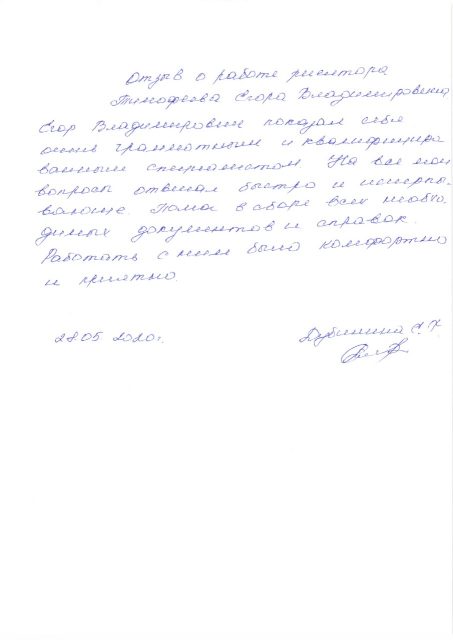 Отзыв о работе риелтора
Тимофеева Егора Владимировича
Егор Владимирович показал себя
очень грамотным и квалифициро
ванным специалистом. На все мои
вопросы отвечал быстро и исчерпы-
вающе. Помог в сборе всех необхо
димых документов и справок.
Работать с ним было комфортно
и приятно.
28.05 2020г.
Дубинина